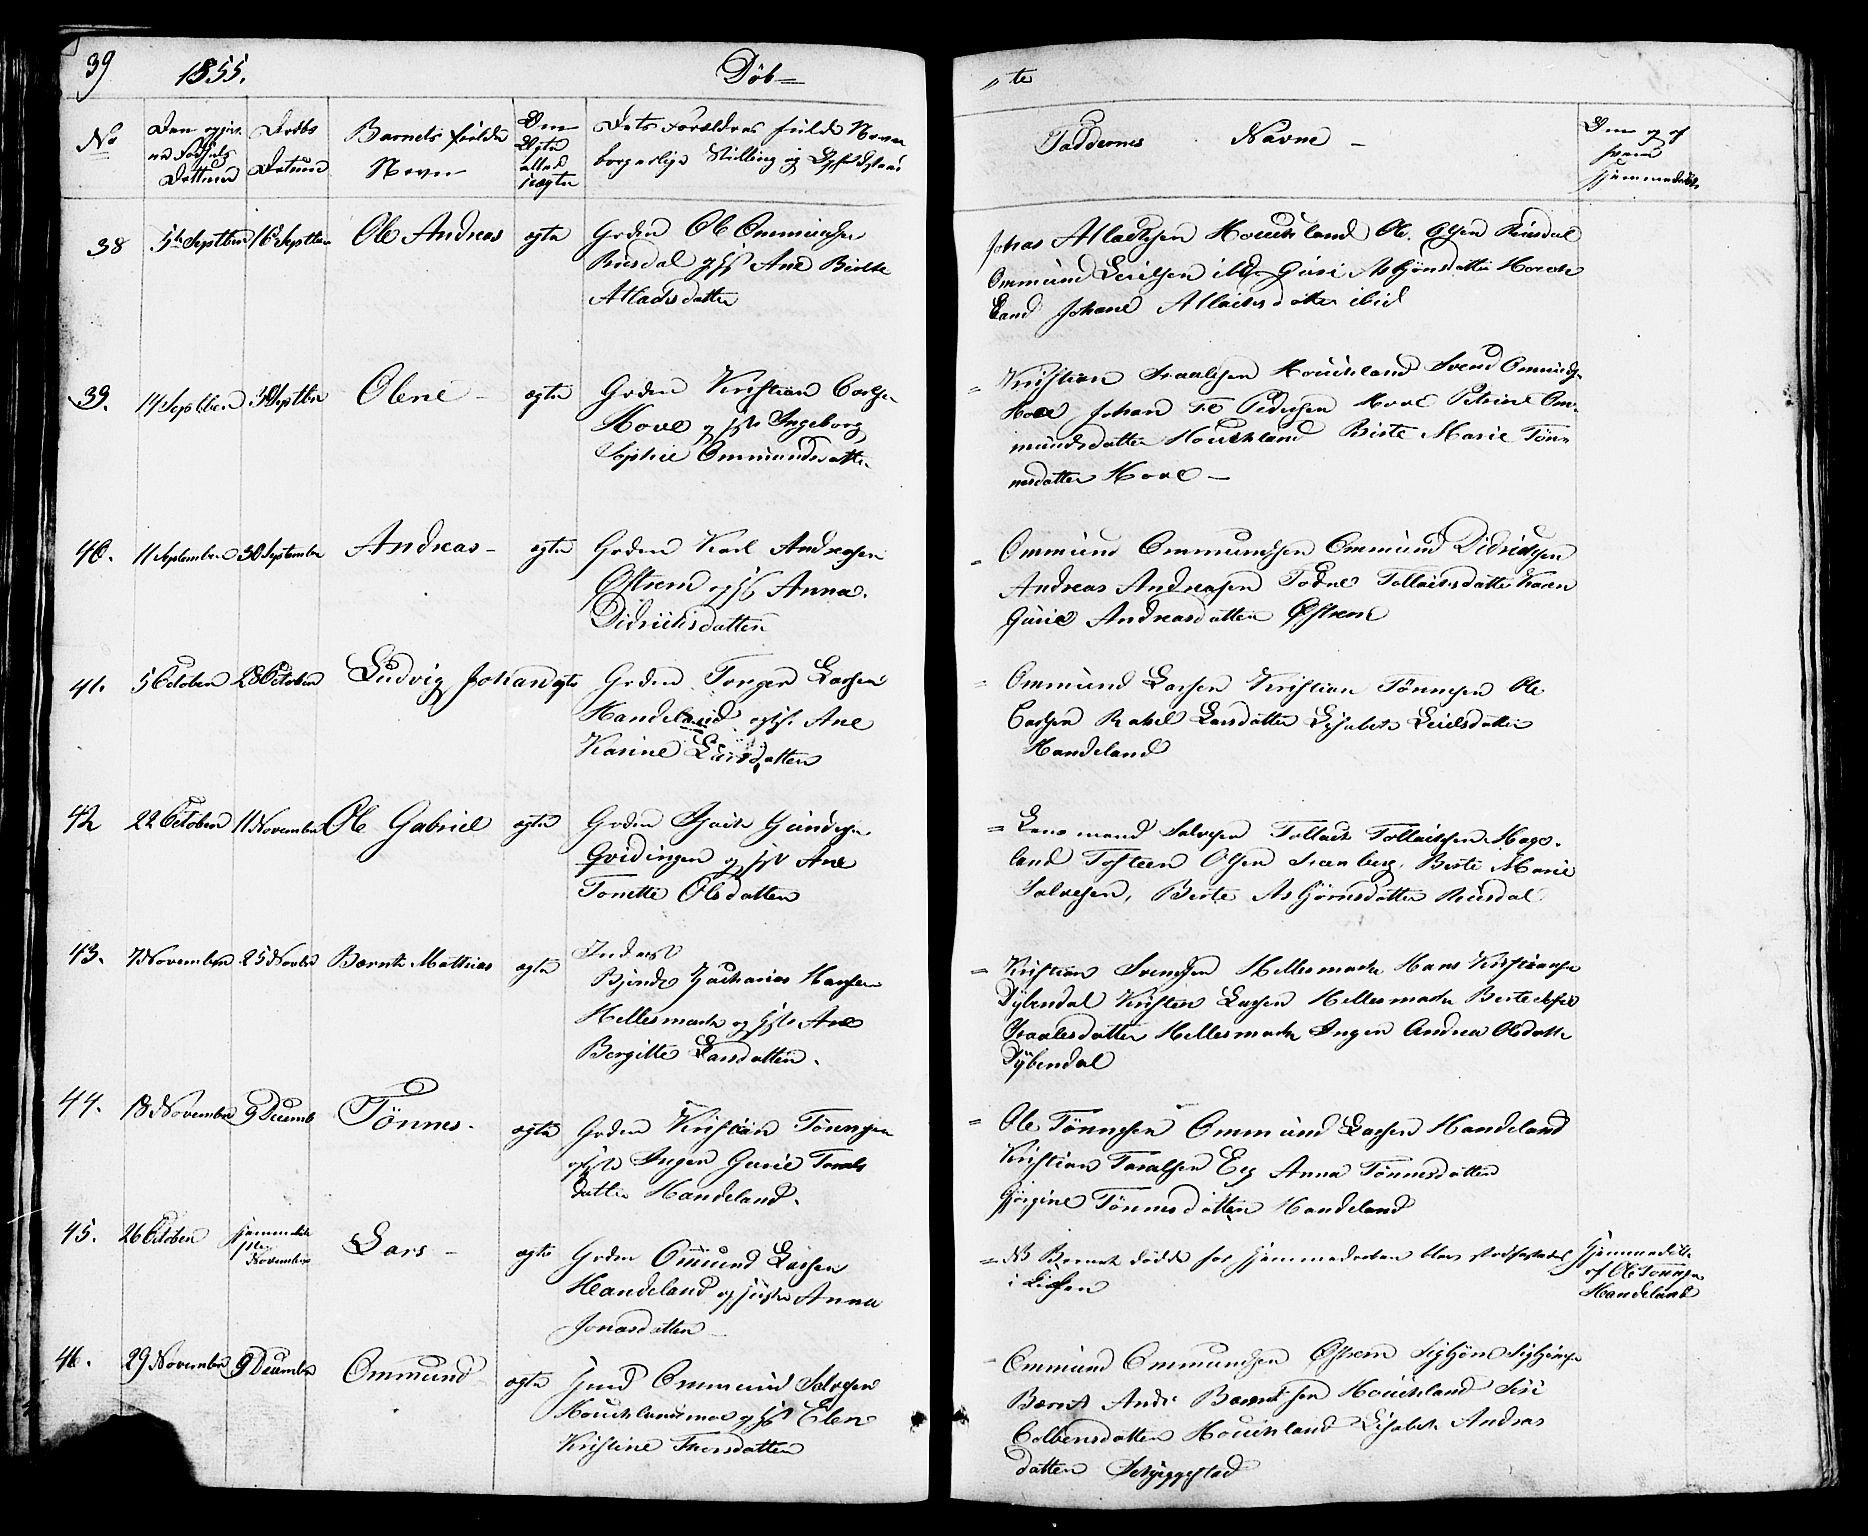 39 1855. Döb= „te
No
Den opgiv.
ne Födsels
Dattum
Daabs
Datum
Barnets fulde
Navn
Om
Ægte
eller
uægte
Dets Forældres fulde Navne
borgerlige Stilling og Opholdssted
Faddernes Navne –
Om og af
hvem
hjemmedöbt
38 5te Septber 16 Septber Ole Andreas ægte
Grdm Ole Ommundsen
Ruusdal og H Ane Birthe
Atlacksdatter
Johas Atlacksen Houckland Ole Olsen Ruusdal
Ommund Leielsen ibd Guri Asbjörnsdatter Houck
land Johane Atlacksdatter ibid
39. 14 Septber 30 Septbr Olene – ægte
Grdm Kristian Carlsen
Hove og Hst Ingeborg
Sophie Ommundsdatter
= Kristian Traalsen Houckland Svend Ommunds.
Hove Johan Pedersen Hove Petrine Om=
mundsdatter Houckland Birte Marie Tön=
nesdatter Hove –
40. 11 September 30 September Andreas – ægte
Grdm Karl Andreasen
Östrem og H Anna
Didricksdatter
= Ommund Ommundsen Ommund Didricksen
Andreas Andreasen Todne Tollacksdatter Karen
Gurie Andreasdatter Östrem
41. 5 October 28 October Ludvig Johan ægte
Grdm Torger Larsen
Handeland og H. Ane
Karine Larsdatter
= Ommund Larsen Kristian Tönnesen Ole
Carlsen Rakel Larsdatter Lisabeth Leielsdatter
Handeland
42 22 October 11 November Ole Gabriel ægte
Grdm Gundersen
Qvidingen og Hst Ane
Tonette Olsdatter
= Lensmand Salvesen Tollack Tollacksen Hage.
land Tosteen Olsen Steenberg, Birte Marie
Salvesen, Birte Asbjörnsdatter Ruusdal
43. 7 November 25 Novbr Bærnt Mathias ægte
Inderst
Zacharias Hansen
Hellesmark og Hst Ane
Bergitte Larsdatter.
= Kristian Svendsen Hellesmark Hans Kristiansen
Dybendal Kristen Larsen Hellesmark Birte
Traalsdatter Hellesmark Inger Andrea Olsdatter
Dybendal
44. 18 November 9 Decemb Tönnes. ægte
Grdm Kristian Tönnesen
og Hst Inger Gurie Torals
datter Handeland.
= Ole Tönnesen Ommund Larsen Handeland
Kristian Toralsen Eeg Anna Tönnesdatter
Gjörgine Tönnesdatter Handeland
45. 26 October
hjemmedöbt
November
Lars – ægte
Grdm Omund Larsen
Handeland og Hustru Anna
Jonasdatter –
= NB Barnet döde før Hjemmedaaben blev stadfæstet
i Kirken
Hjemmedöbt
af Ole Tönnesen
Handeland
46. 29 November 9 December Ommund ægte
Ommund Salvesen
Houcklandsmoe og Hst Elen
Kristine Thorsdatter
Ommund Ommundsen Östrem Sigbjörn Sigbjörnsen
Bærnt Andr Bærntsen Houckland Siri
Colbensdatter Houckland Lisabeth Andreas
datter Schjeggestad